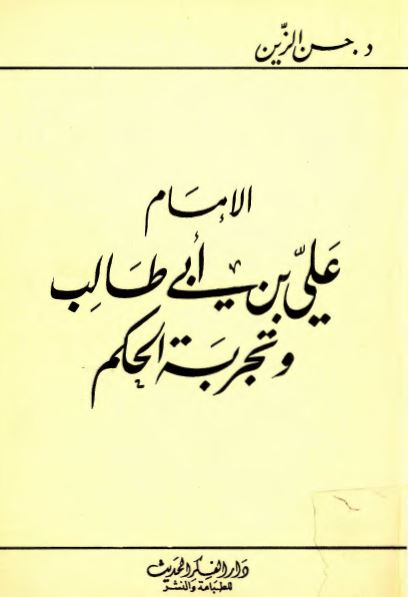 د. حسن الزّين
الإمام
عَليّ بن أبي طَالِب
وتجربَة الحكم
دار الفِكر الحَديث
للطباعة والنشر